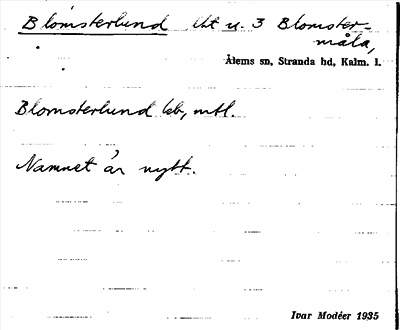 Blomsterlund lht u. 3 Blomster-
måla,
Ålems sn, Stranda hd, Kalm. l.
Blomsterlund lab, mtl.
Namnet är nytt.
Ivar Modéer 1935